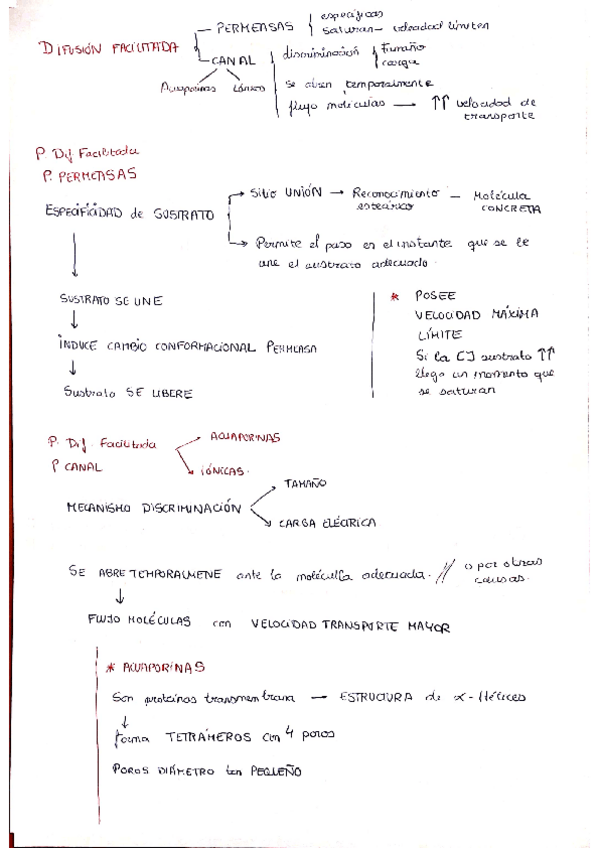 DIFUSIÓN FACILITADA
PERMEASAS
específicas
saturan - velocidad límiten
CANAL
Acuaporinas iónicos
discriminación
Tamaño
carga
se abren temporalmente
flujo moléculas → ↑↑ velocidad de
transporte
P. Dif Facilitada
P. PERMEASAS
ESPECIFICIDAD de SUSTRATO
Sitio UNIÓN → Reconocimiento - Molécula
estérico CONCRETA
Permite el paso en el instante que se le
une el sustrato adecuado.
SUSTRATO SE UNE
↓
INDUCE CAMBIO CONFORMACIONAL PERMEASA
↓
Sustrato SE LIBERE
* POSEE
VELOCIDAD MÁXIMA
LÍMITE
Si la [] sustrato ↑↑
llega un momento que
se saturan
P. Dif. Facilitada
P CANAL
ACUAPORINAS
IÓNICAS.
MECANISMO DISCRIMINACIÓN
TAMAÑO
CARGA ELÉCTRICA
SE ABRE TEMPORALMENE ante la molécula adecuada. // o por otras
causas.
↓
FLUJO MOLÉCULAS con VELOCIDAD TRANSPORTE MAYOR
* ACUAPORINAS
Son proteínas transmembrana → ESTRUCTURA de α-Hélices
↓
forma TETRÁMEROS con 4 poros
POROS DIÁMETRO tan PEQUEÑO